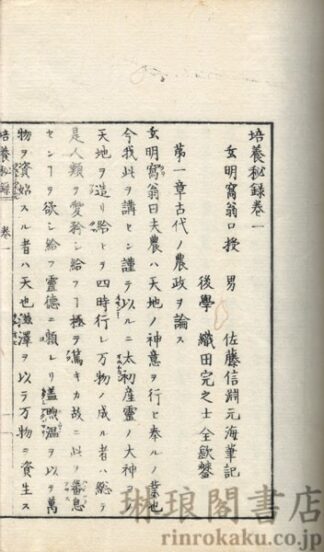 培養秘録卷一
玄明窩翁口授 男 佐藤信淵元海筆記
後學 織田完之士全歐鑒
第一章古代ノ農政ヲ論ス
玄明窩翁曰夫農ハ天地ノ神意ヲ行ヒ奉ルノ業也
今我此ヲ講セン謹テ以ルニ太初産靈ノ大神ヨリ
天地ヲ造リ給ヒヲ四時行レ万物ノ成ル者ハ總テ
是人類ヲ愛 給フ 極ヲ篤キカ故ニ此ヲ蕃息
セン ヲ欲シ給フ靈德ニ頼レリ 温ヲ以ヲ萬
物ヲ資始スル者ハ天也 澤ヲ以ラ万物ニ資生ス
培養秘録 卷一
琳琅閣書店
rinrokaku.co.jp